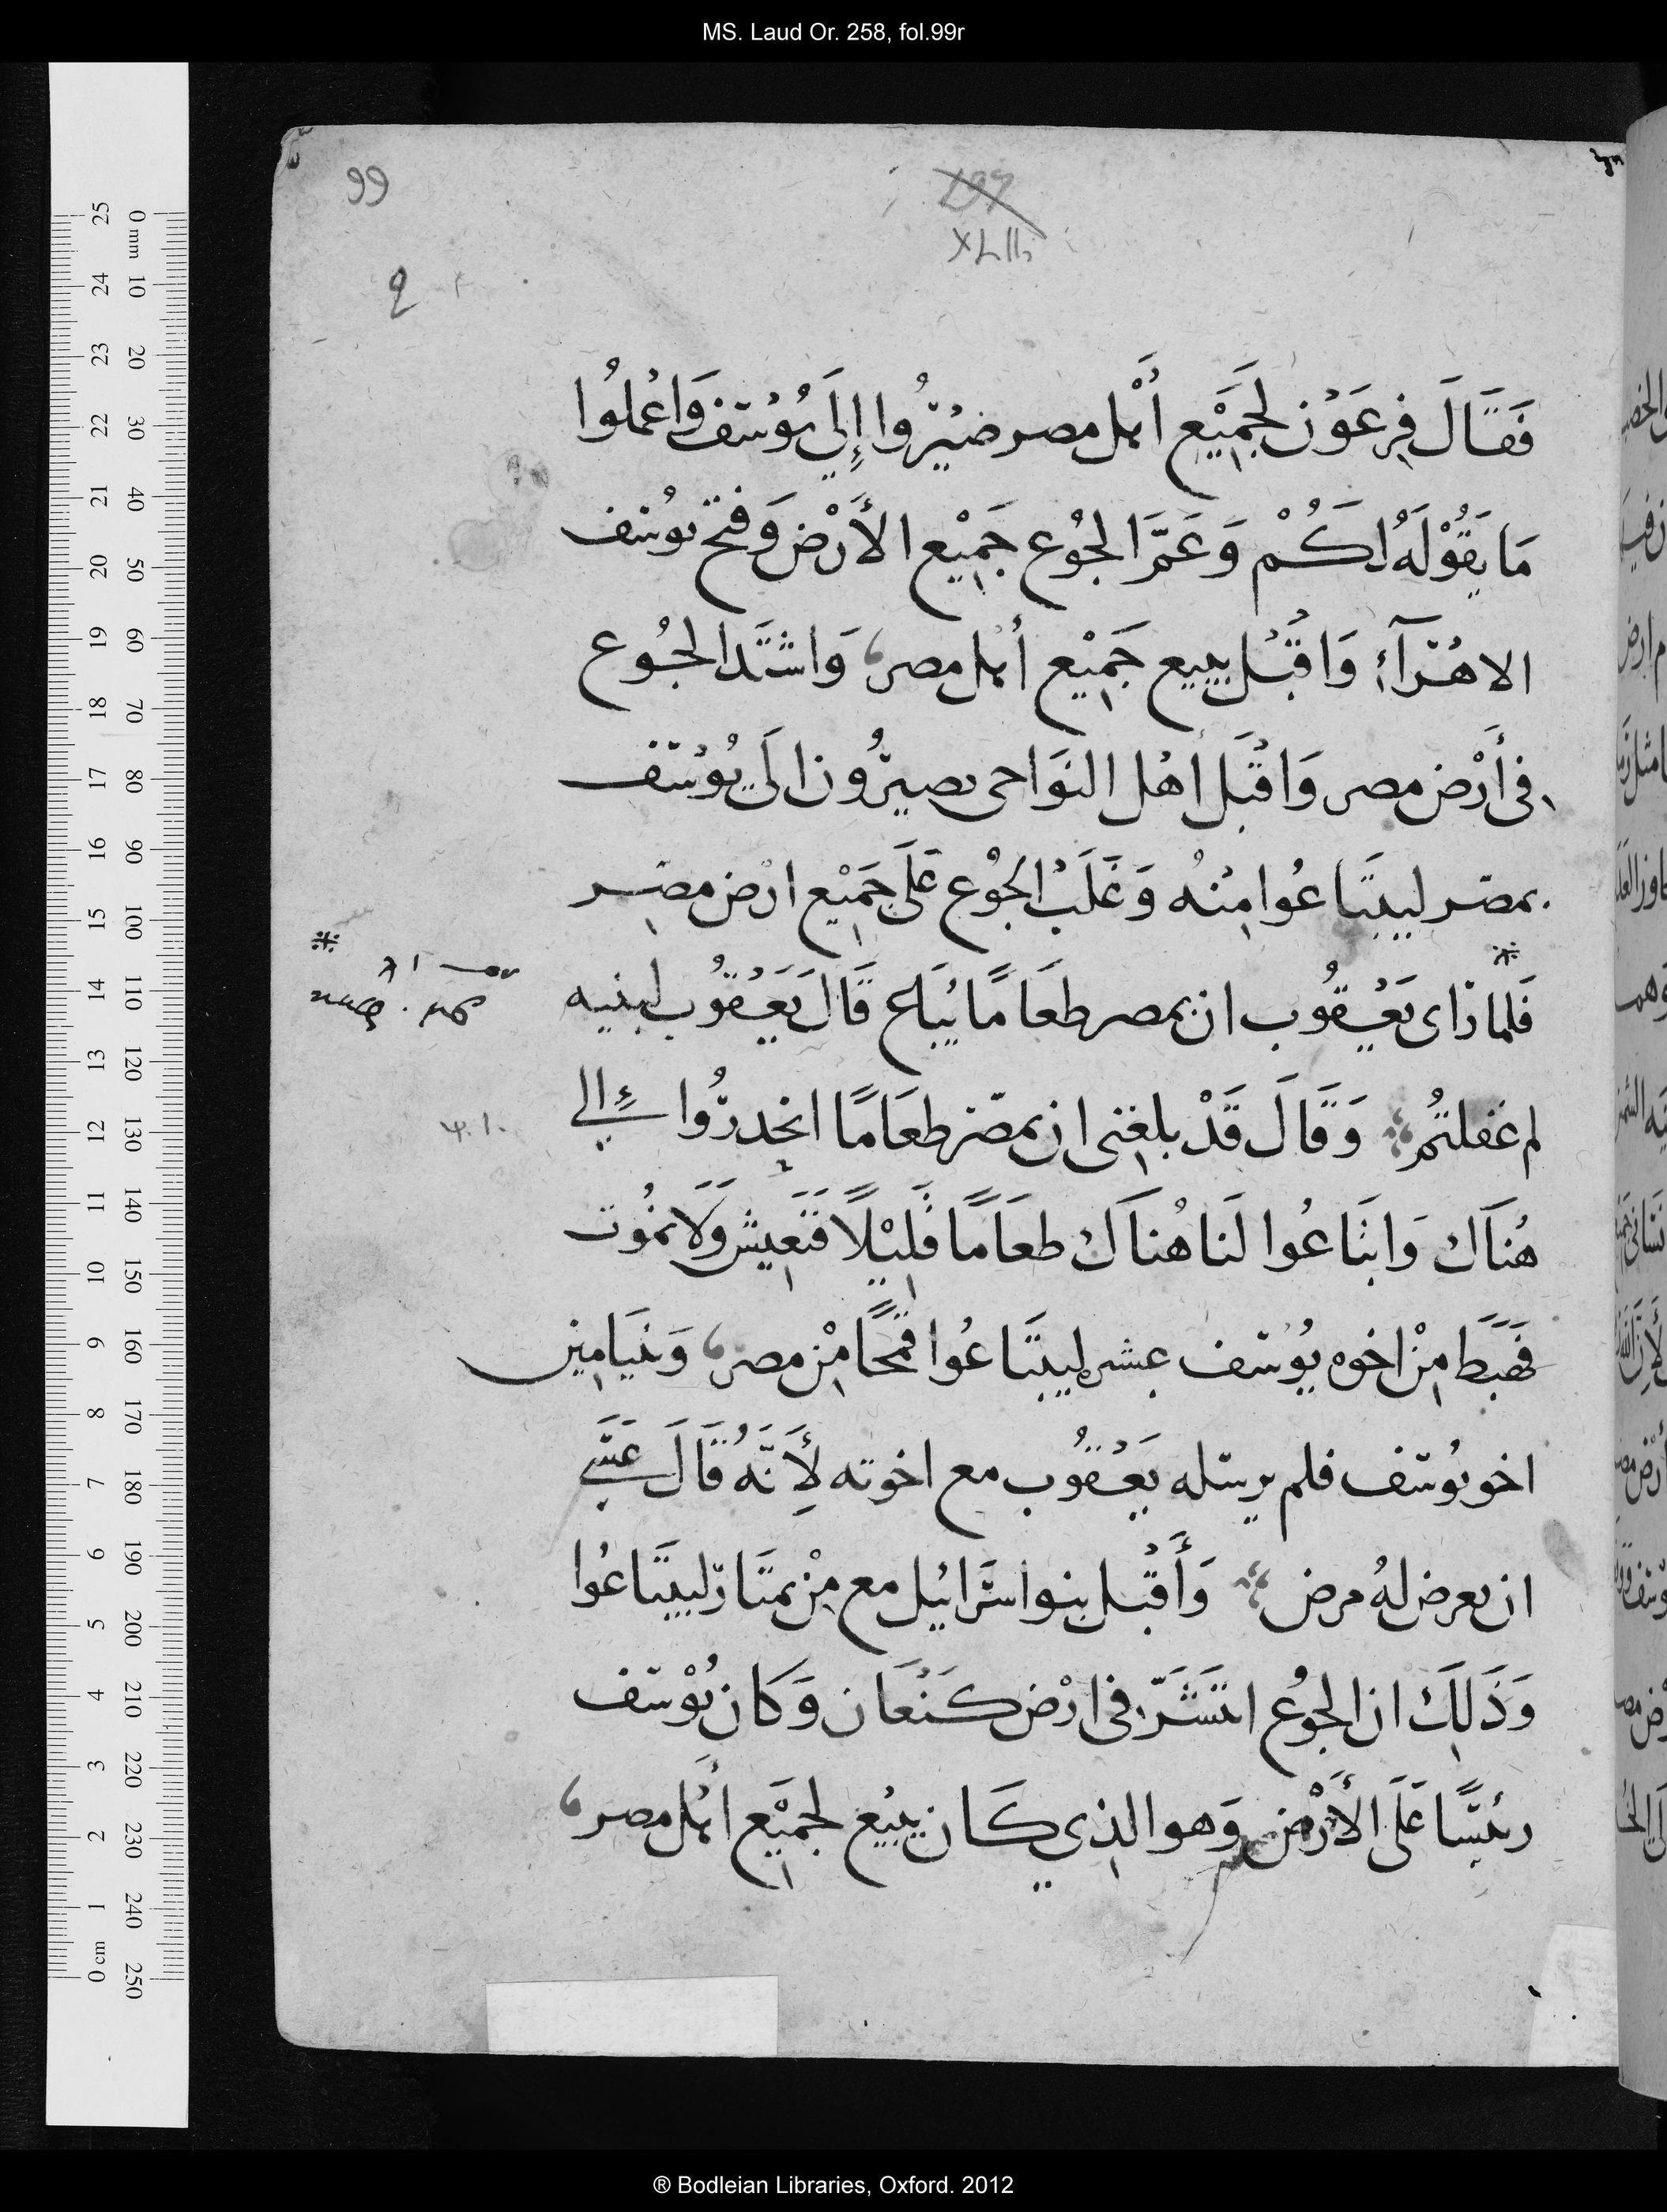 MS. Laud Or. 258, fol.99r
99
XLII
فَقَالَ فِرعَوْن لجَمِيْع أَهْل مصر صِيْرُوا إِلَى يُوْسف وَاعْملُوا
مَا يَقُوْلَهُ لَكُمْ وَعَمَّ الجُوع جَمِيْع الأَرْض وَفتح يوُسف
الاهْرَآءِ وَاقْبَل يبيع جَمِيْع أهل مصر، وَاشتَد الجُوع
فى أَرْض مصر وَاقْبَل اهْل النوَاحى يصيرُون الَى يُوْسف
بمصر ليبتَاعُوا مِنْهُ وَغَلَبَ الجُوْع عَلَى جَمِيْع ارْض مصر
فَلما رَاى يَعْقُوب ان بمصر طعَامًا يُبَاع قَالَ يَعْقُوب لبنيه
لم غفلتُم وَقَالَ قَدْ بلغنى ان بمصر طعَامًا انحدرُوا إِلي
هُنَاك وَابتَاعُوا لَنا هُنَاكَ طعَامًا قَلِيْلًا فَنَعِيش وَلَا نمُوت
فَهَبَط مِنْ اخوه يُوسف عشره ليبتَاعُوا قمحًا مِنْ مصر، وَبنيَامِين
اخو يُوسف فلم يرسله يَعْقُوب مع اخوته لِأَنَّهُ قَالَ عَسَى
ان يعرض لهُ مرض وَأَقْبَل بنوا اسرَائيل مع مِنْ يمتَار ليبتَاعُوا
وَذَلِكَ ان الجُوع انتَشَر فى ارْض كَنْعَان وَكَان يُوْسف
رئيسًا عَلَى الأَرْض وَهو الذِي كَان يبيْع لجَمِيْع اهْل مصر،
0 mm 10 20 30 40 50 60 70 80 90 100 110 120 130 140 150 160 170 180 190 200 210 220 230 240 250
25 24 23 22 21 20 19 18 17 16 15 14 13 12 11 10 9 8 7 6 5 4 3 2 1 0 cm
® Bodleian Libraries, Oxford. 2012